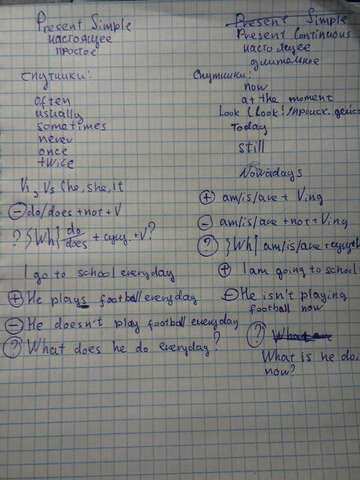 Present Simple
настоящее
простое
спутники:
often
usually
sometimes
never
once
twice
V, Vs (he, she, it
- do/does + not + V
? }Wh{ do/does + сущ. + V?
I go to school everyday
+ He plays football everyday
- He doesn't play football everyday
? What does he do everyday?
Present Simple
Present Continuous
настоящее
длительное
Спутники:
now
at the moment
Look (look! /происх.
Today
still
Nowadays
+ am/is/are + Ving
- am/is/are + not + Ving
? }Wh{ am/is/are +
+ I am going to school
- He isn't playing
football now
?
What is he
now?